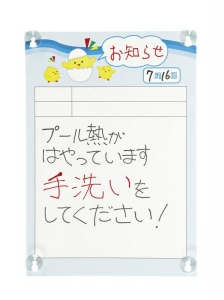 お知らせ
7月16日
プール熱が
はやっています
手洗いを
してください!